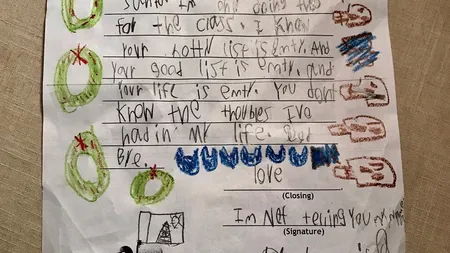 Santa I'm onl doing this
for the class. I know
Your notty list is emty. And
Your good list is emty. and
Your life is emty. You dont
know the troubles Ive
had in my life. Good
Bye.
love
(Closing)
Im Not telling you my name
(Signature)